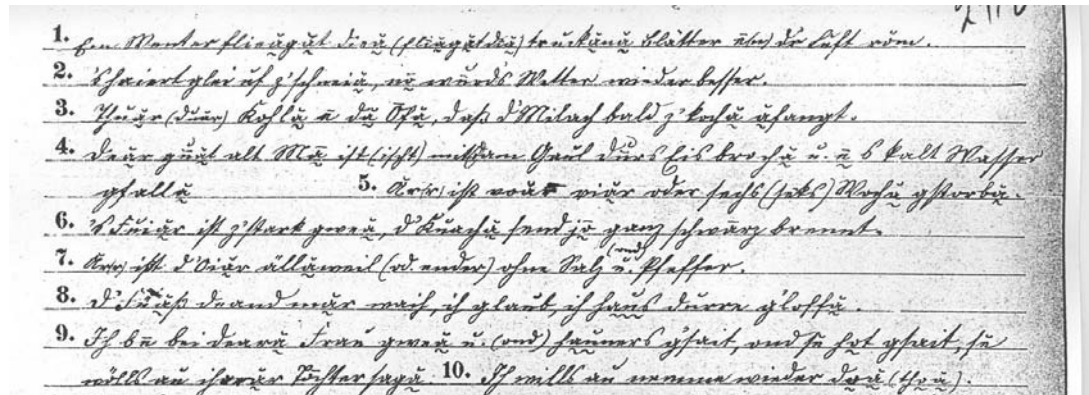 1. Em Wenter flieăgăt dieă (fliăgăt diă) truckănă Blätter ĕn dr Luft röm.
2. 's haiert glei uf z'schneiă, nō wurds Wetter wieder besser.
3. Thuăr (duăr) Kohlă ĕ dă Ofă, daß d'Milach bald z'kochă ăfangt.
4. Deăr guăt alt Mă ist (ischt) mitsam Gaul durs Eis brochă u. ĕ s kalt Wasser
gfallă 5. Ar(r) ist voăr viăr oder sechs (seks) Wochă gstorbă.
6. 's Fuiăr ist z'stark gweă, d'Kuachă send jō ganz schwărz brennt.
7. Ar(r) ißt d'Oiăr ällăweil (od. ender) ohne Salz (ond) u. Pfeffer.
8. D'Füăß deand măr waih, ich glaub, ich haus durre g'loffă.
9. Ich bĕ bei deară Frau gweă u. (ond) hauners gsait, ond se hot gsait, se
wölls au ihrăr Tochter sagă. 10. Ich wills au nemme wieder doă (thoă).